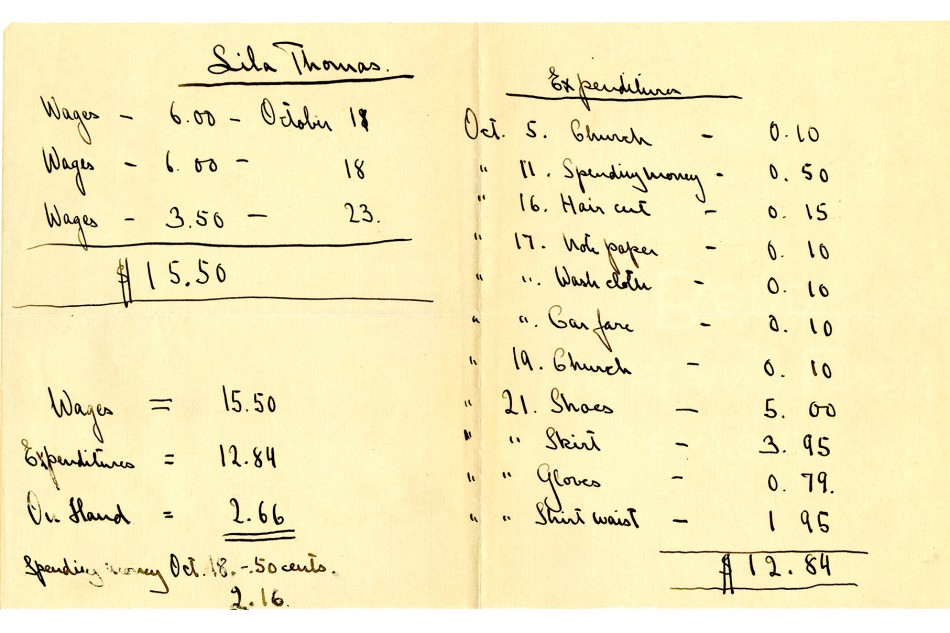 Lila Thomas.
Wages - 6.00 - October 18
Wages - 6.00 - 18
Wages - 3.50 - 23.
$15.50
Wages = 15.50
Expenditures = 12.84
On Hand = 2.66
Spending money Oct. 18. - .50 cents.
2.16.
Expenditures
Oct. 5. Church - 0.10
" 11. Spending money - 0.50
" 16. Hair cut - 0.15
" 17. Note paper - 0.10
" ". Wash cloth - 0.10
" ". Car fare - 0.10
" 19. Church - 0.10
" 21. Shoes - 5.00
" " Skirt - 3.95
" " Gloves - 0.79.
" " Shirt waist - 1 95
$12.84